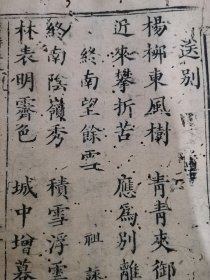 送别
楊栁東風樹 青青夾御
近來攀折苦 應爲別離
終南望餘雪 祖詠
終南陰嶺秀 積雪浮雲
林表明霽色 城中增暮